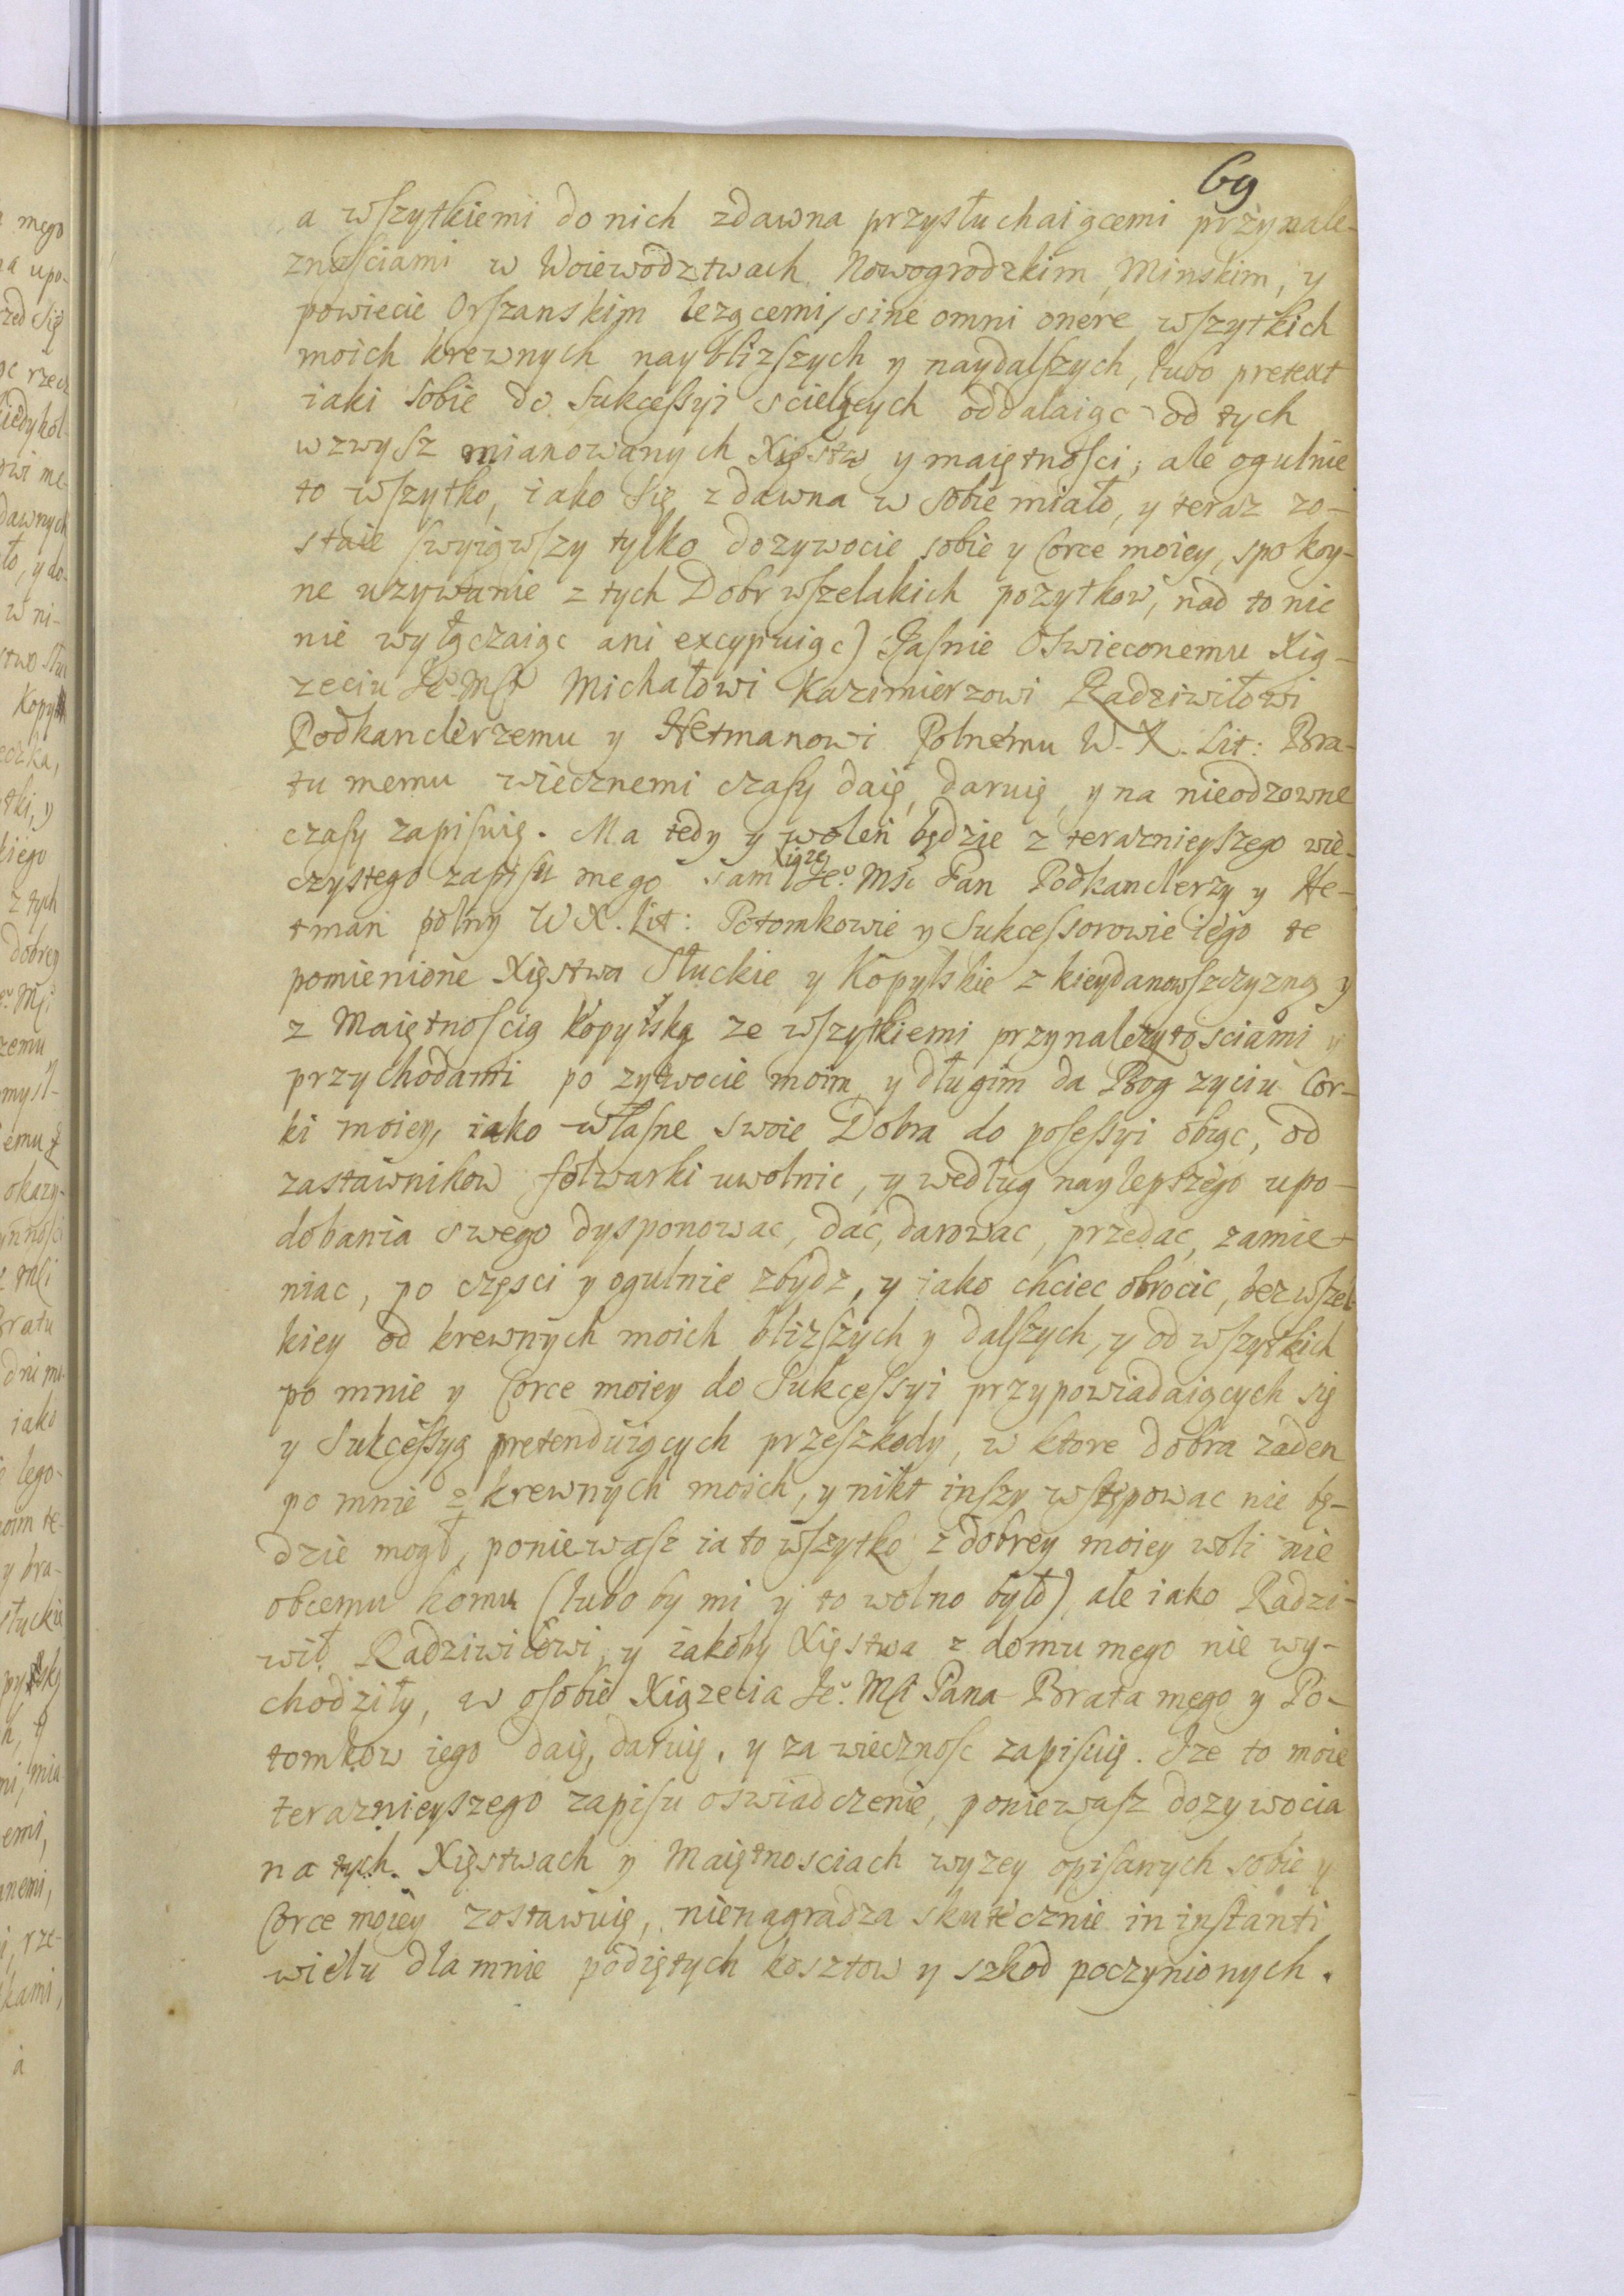 69
a wszytkiemi do nich zdawna przysłuchaiącemi przynale-
znosciami w Woiewodztwach Nowogrodzkim, Minskim, y
powiecie Orszanskim lezącemi, sine omni onere wszytkich
moich krewnych nayblizszych y naydalszych, lubo pretext
iaki sobie do Sukcessyi scielących oddalaiąc od tych
wzwysz mianowanych Xięstw y maiętnosci; ale ogulnie
to wszytko, iako się zdawna w sobie miało, y teraz zo-
staie (wyiąwszy tylko dozywocie sobie y Corce moiey, spokoy-
ne uzywanie z tych Dobr wszelakich pozytkow, nad to nic
nie wyłączaiąc ani excypuiąc) Jasnie Oswieconemu Xią-
zeciu Je° Msci Michałowi Kazimierzowi Radziwiłowi
Podkanclerzemu y Hetmanowi Polnemu W. X. Lit: Bra-
tu memu wiecznemi czasy daię, daruię, y na nieodzowne
czasy zapisuię. Ma tedy y wolen będzie z teraznieyszego wie-
czystego zapisu mego sam Xiąze Je° Msc Pan Podkanclerzy y He-
tman polny W X. Lit: Potomkowie y Sukcessorowie iego te
pomienione Xięstwa Słuckie y Kopylskie z kieydanowszczyzną y
z Maiętnoscią Kopyśską ze wszytkiemi przynalezytosciami y
przychodami po zywocie moim y długim da Bog zyciu Cor-
ki moiey, iako własne swoie Dobra do posessyi obiąc, od
zastawnikow folwarki uwolnic, y według naylepszego upo-
dobania swego dysponowac, dac, darowac, przedac, zamie-
niac, po częsci y ogulnie zbydz, y iako chciec obrocic, bez wszel-
kiey od krewnych moich blizszych y dalszych, y od wszytkich
po mnie y Corce moiey do Sukcessyi przypowiadaiących się
y Sukcessyą pretenduiących przeszkody, w ktore dobra zaden
po mnie z krewnych moich, y nikt inszy wstępowac nie bę-
dzie mogł, poniewasz ia to wszytko z dobrey moiey woli nie
obcemu komu (lubo by mi y to wolno było) ale iako Radzi-
wił Radziwiłowi, y iakoby Xięstwa z domu mego nie wy-
chodziły, w osobie Xiązecia Je° Msci Pana Brata mego y Po-
tomkow iego daię, daruię, y za wiecznosc zapisuię. Ize to moie
teraznieyszego zapisu oswiadczenie, poniewasz dozywocia
na tych Xięstwach y Maiętnosciach wyzey opisanych sobie y
Corce moiey zostawuię, nienagradza skutecznie in instanti
wielu dla mnie podiętych kosztow y szkod poczynionych.